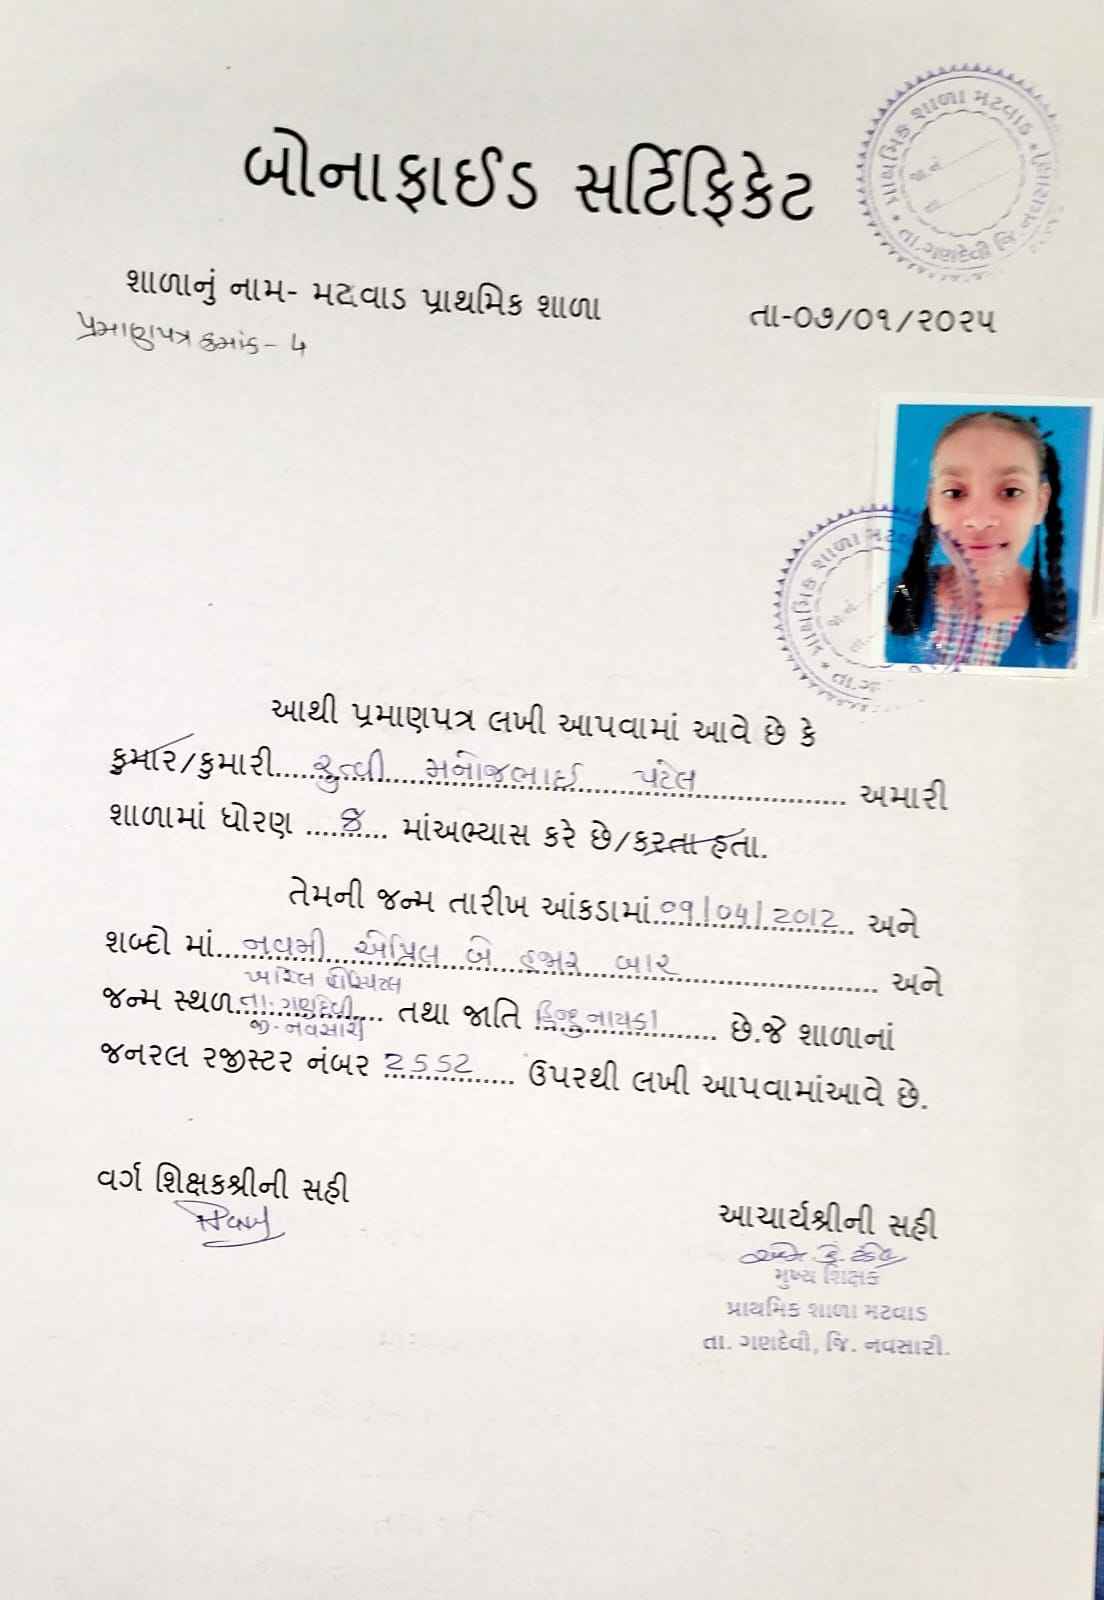 બોનાફાઈડ સર્ટિફિકેટ
* પ્રાથમિક શાળા મટવાડ * તા.ગણદેવી જિ.
શાળાનું નામ- મટવાડ પ્રાથમિક શાળા
તા-૦૭/૦૧/૨૦૨૫
પ્રમાણપત્ર ક્રમાંક- 4
પ્રાથમિક શાળા મટવા
આથી પ્રમાણપત્ર લખી આપવામાં આવે છે કે
કુમાર/કુમારી.....રુત્વી મનોજભાઈ પટેલ..... અમારી
શાળામાં ધોરણ ....૭.... માંઅભ્યાસ કરે છે/કરતા હતા.
તેમની જન્મ તારીખ આંકડામાં..૦૧/૦૫/2012.. અને
શબ્દો માં..નવમી એપ્રિલ બે હજાર બાર..... અને
હોસ્પિટલ
જન્મ સ્થળ.તા.ગણદેવી... તથા જાતિ હિન્દુ નાયકા..... છે.જે શાળાનાં
જી.નવસારી
જનરલ રજીસ્ટર નંબર 2552..... ઉપરથી લખી આપવામાંઆવે છે.
વર્ગ શિક્ષકશ્રીની સહી
આચાર્યશ્રીની સહી
મુખ્ય શિક્ષક
પ્રાથમિક શાળા મટવાડ
તા. ગણદેવી, જિ. નવસારી.